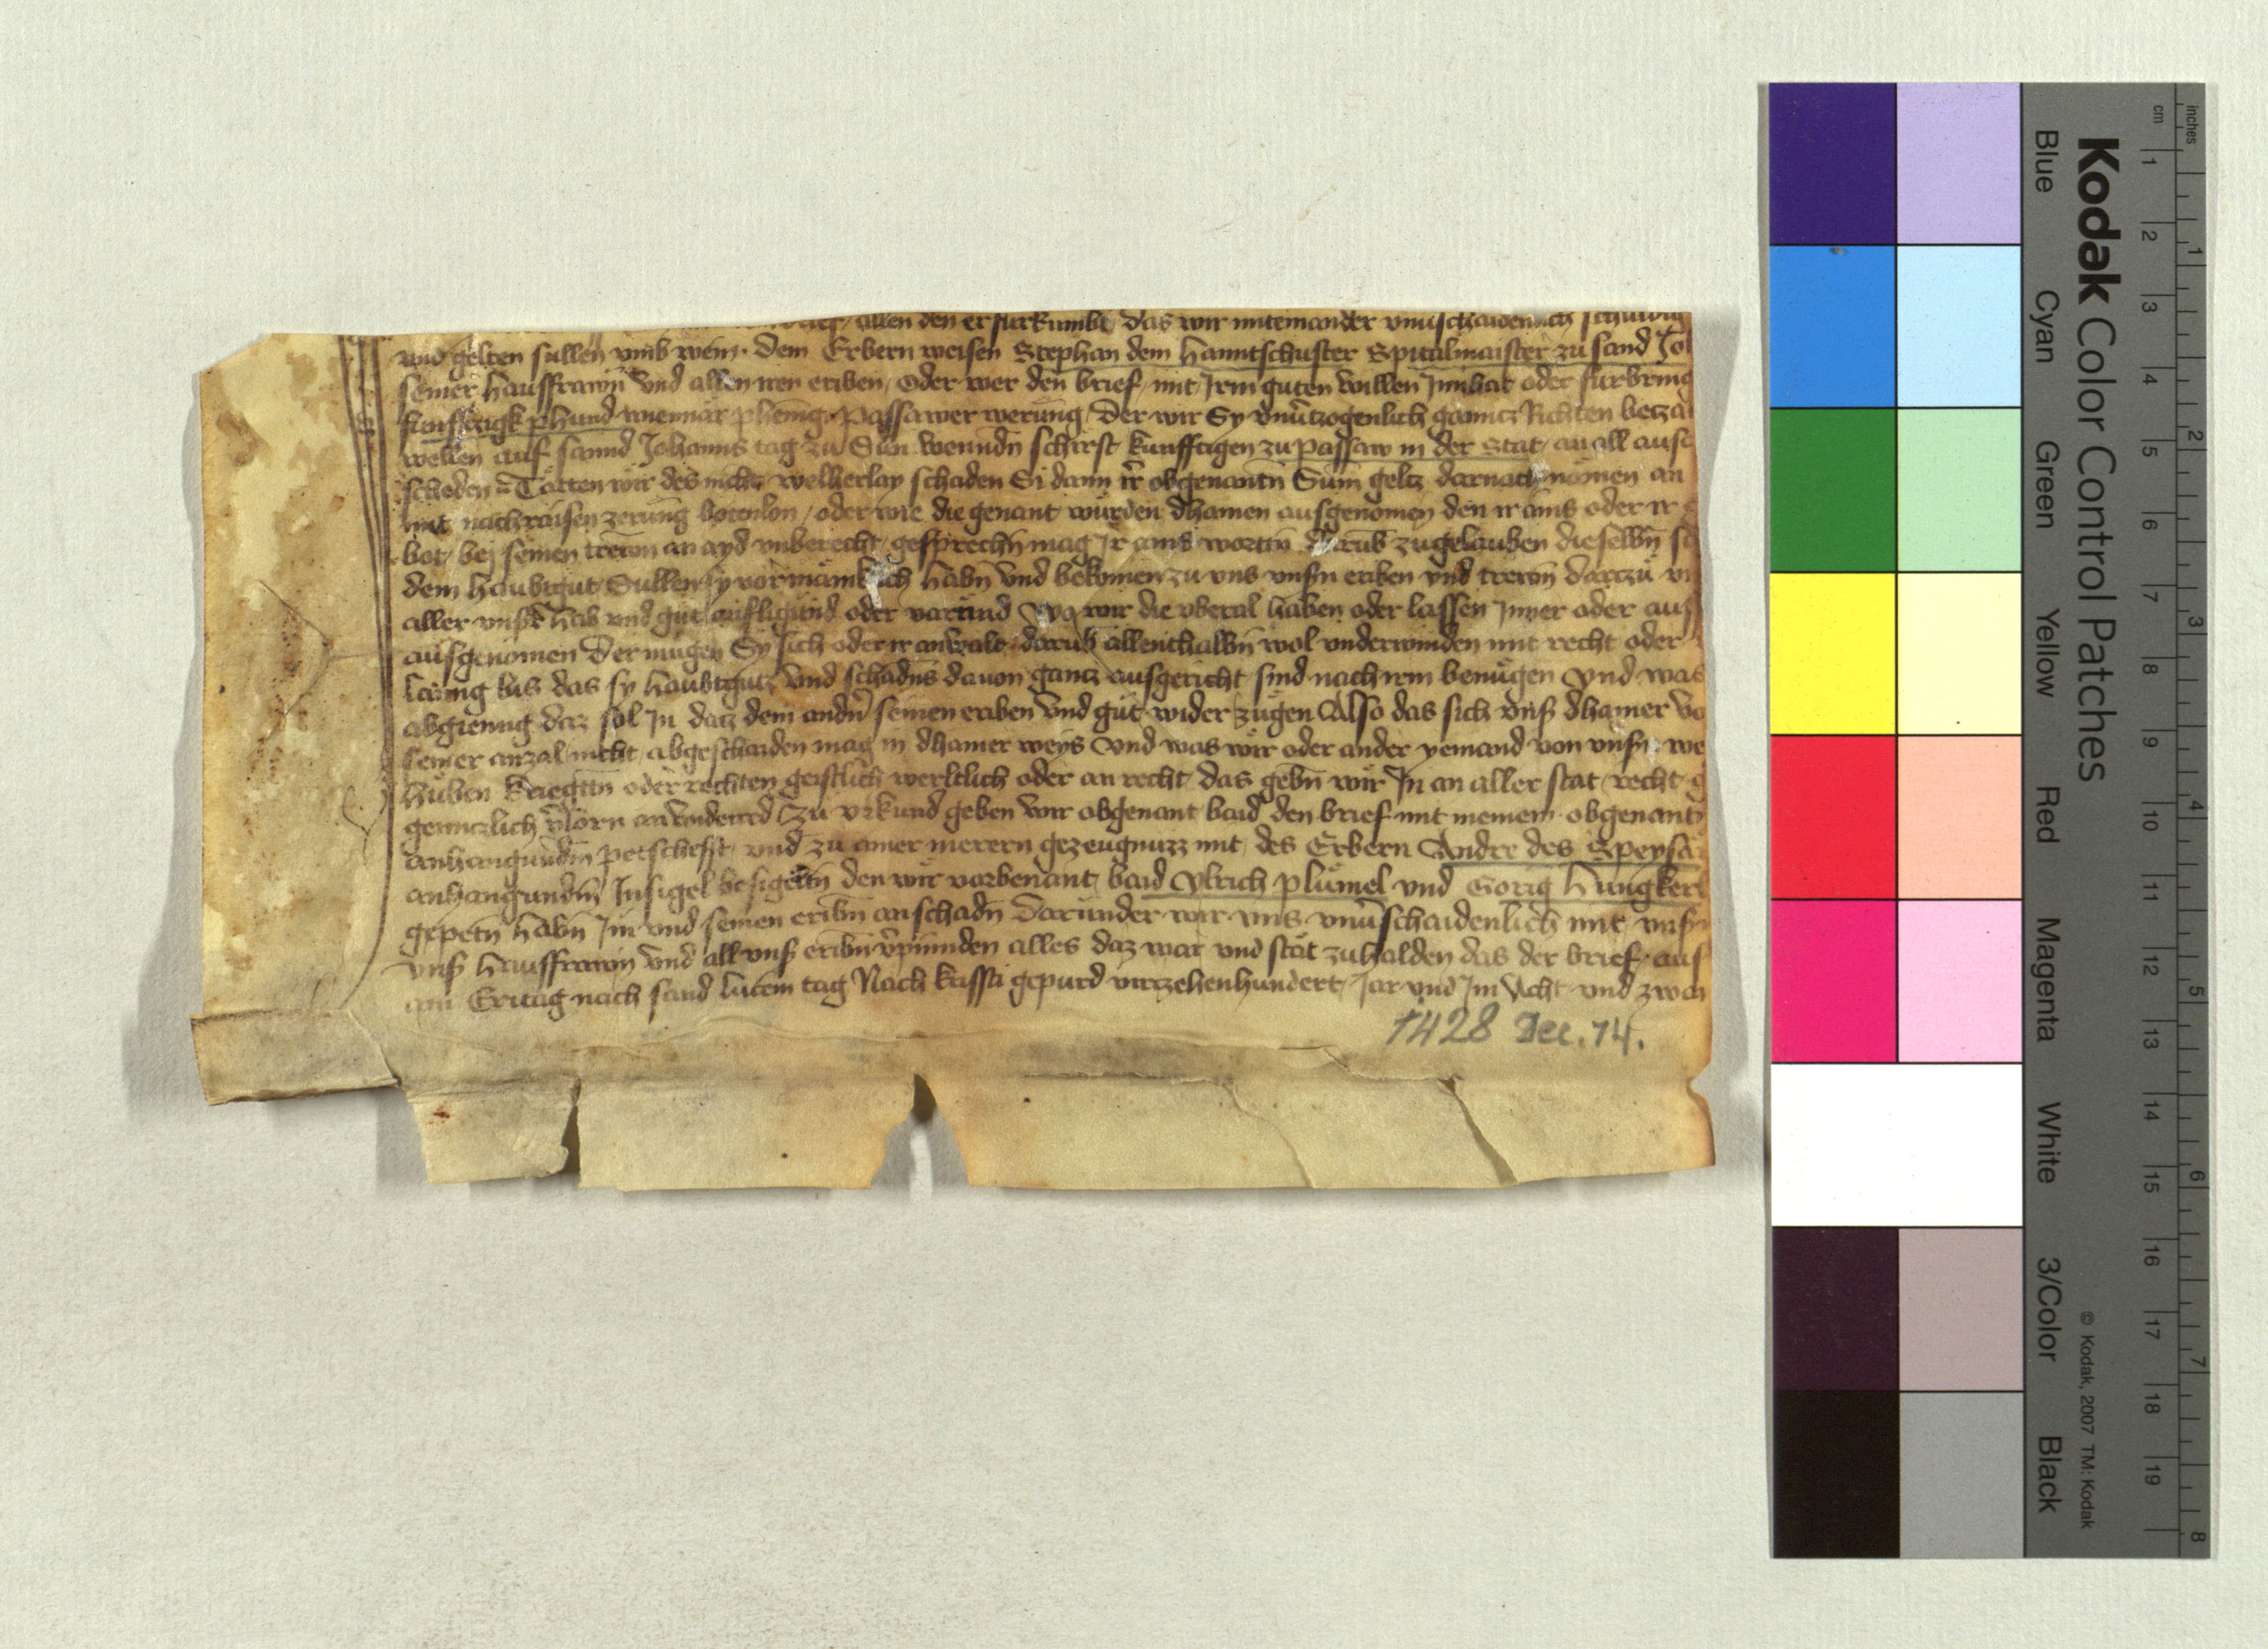 brief allen den er furkumbt das wir miteinander vnuerschaidenlich schuldig
vnd gelten sullen vmb wein. dem Erbern weisen Stephan dem hanntschuster Spitalmaister zu sand Jo
seiner hausfrawn vnd allen iren eriben, oder wer den brief mit Irm guten willen Innhat oder furbring
funfczigk phund wiennär phenig Passawer werung, der wir Sy vnuerczogenlich gannicz Richten beczal
wellen auf sannd Johanns tag zu Sun wenndn schirst kunfftigen zu passaw in der Stat, an all ausc
scheden Tätten wir des nicht welherlay schaden Si dann ir obgenantn Sum geltz darnach nömen an
mit nachraisen zerung botenlon, oder wie die genant wurden dhainen ausgenomen den ir ains oder ir
bot, bej seinen trewn an ayd vnberecht, gesprechn mag Ir ains wortn darub zugelauben dieselbn sc
dem haubtgut Sullen sy vor mänklich habn vnd bekomen zu vns vnsern eriben vnd trewn darczu vn
aller vnser hab vnd gut aufligund oder varund wo wir die vberal haben oder lassen Inner oder aus
ausgenomen der mugen Sy sich oder ir anwalt darub allenthalbn wol vnderwinden mit recht oder
laittung bis das sy haubtgutz vnd schadns dauon gantz ausgericht sind nach irm benugen vnd was
abgienng daz sol In datz dem andern seinen eriben vnd gut wider zugen Also das sich vnser dhainer vo
seiner anzal nicht abgeschaiden mag in dhainer weys vnd was wir oder ander yemand von vnsern we
huben kriegtn oder rechten geistlich werltlich oder an recht das gebn wir In an aller stat recht g
genntzlich verlorn an widerred Zu vrkund geben wir obgenant baid den brief mit meinem obgenant
anhangundm petschefft, vnd zu ainer merern gezeugnuzz mit, des Erbern Andre des Speysär
anhangundm Insigel besigeltn den wir vorbenant, baid Vlrich plumel vnd Gorig hungkerl
gepetn habn Im vnd seinen eribn an schadn darunder wir vns vnuerschaidenlich mit vnsern
vnser hausfrawn vnd all vnser eribn verpinnden alles daz war vnd stät zuhalden das der brief aus
am Eritag nach sand lucein tag Nach kristi gepurd vierzehenhundert, Jar vnd Im Acht vnd zwai
1428 Dec. 14.
Kodak Color Control Patches
Blue Cyan Green Yellow Red Magenta White 3/Color Black
© Kodak, 2007 TM: Kodak
cm 1 2 3 4 5 6 7 8 9 10 11 12 13 14 15 16 17 18 19
inches 1 2 3 4 5 6 7 8